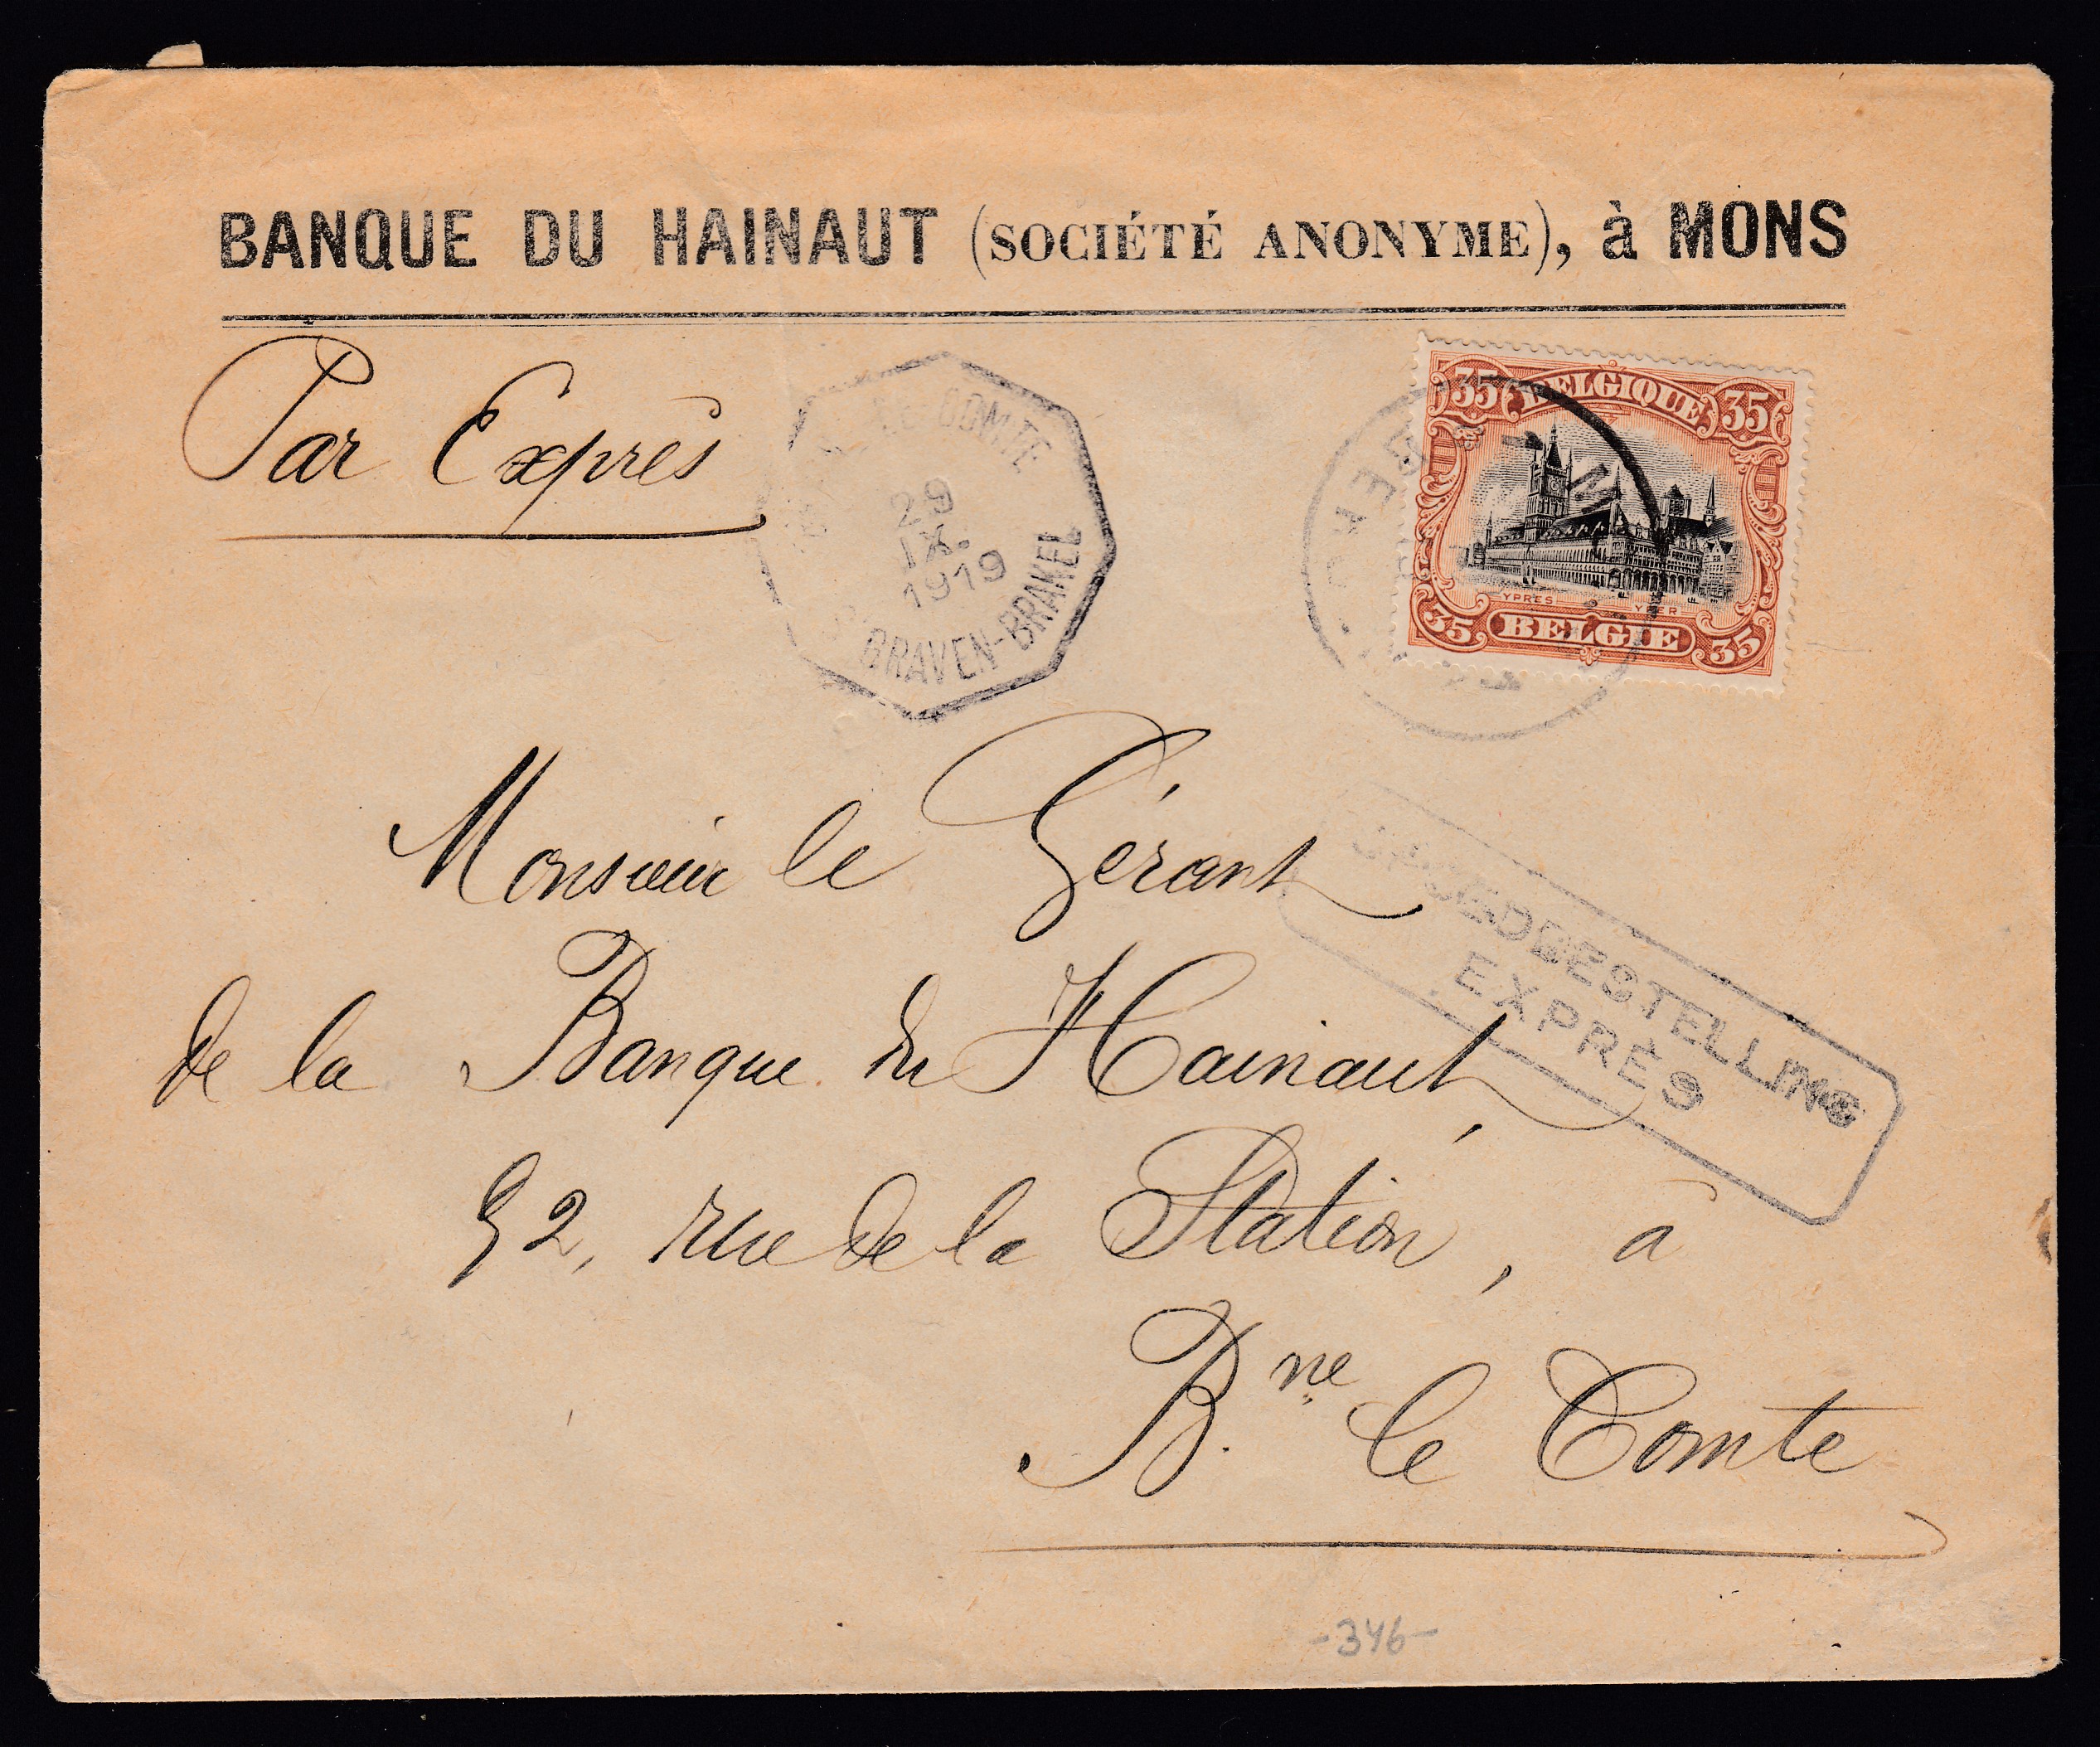 BANQUE DU HAINAUT (SOCIÉTÉ ANONYME), à MONS
Par Exprès
COMTE
29
IX.
1919
'S GRAVEN-BRAKEL
35 BELGIQUE 35
YPRES YPER
35 BELGIE 35
Monsieur le Gérant
SPOEDBESTELLING
EXPRÈS
de la Banque du Hainaut,
52, rue de la Station, à
B.ne le Comte
-346-